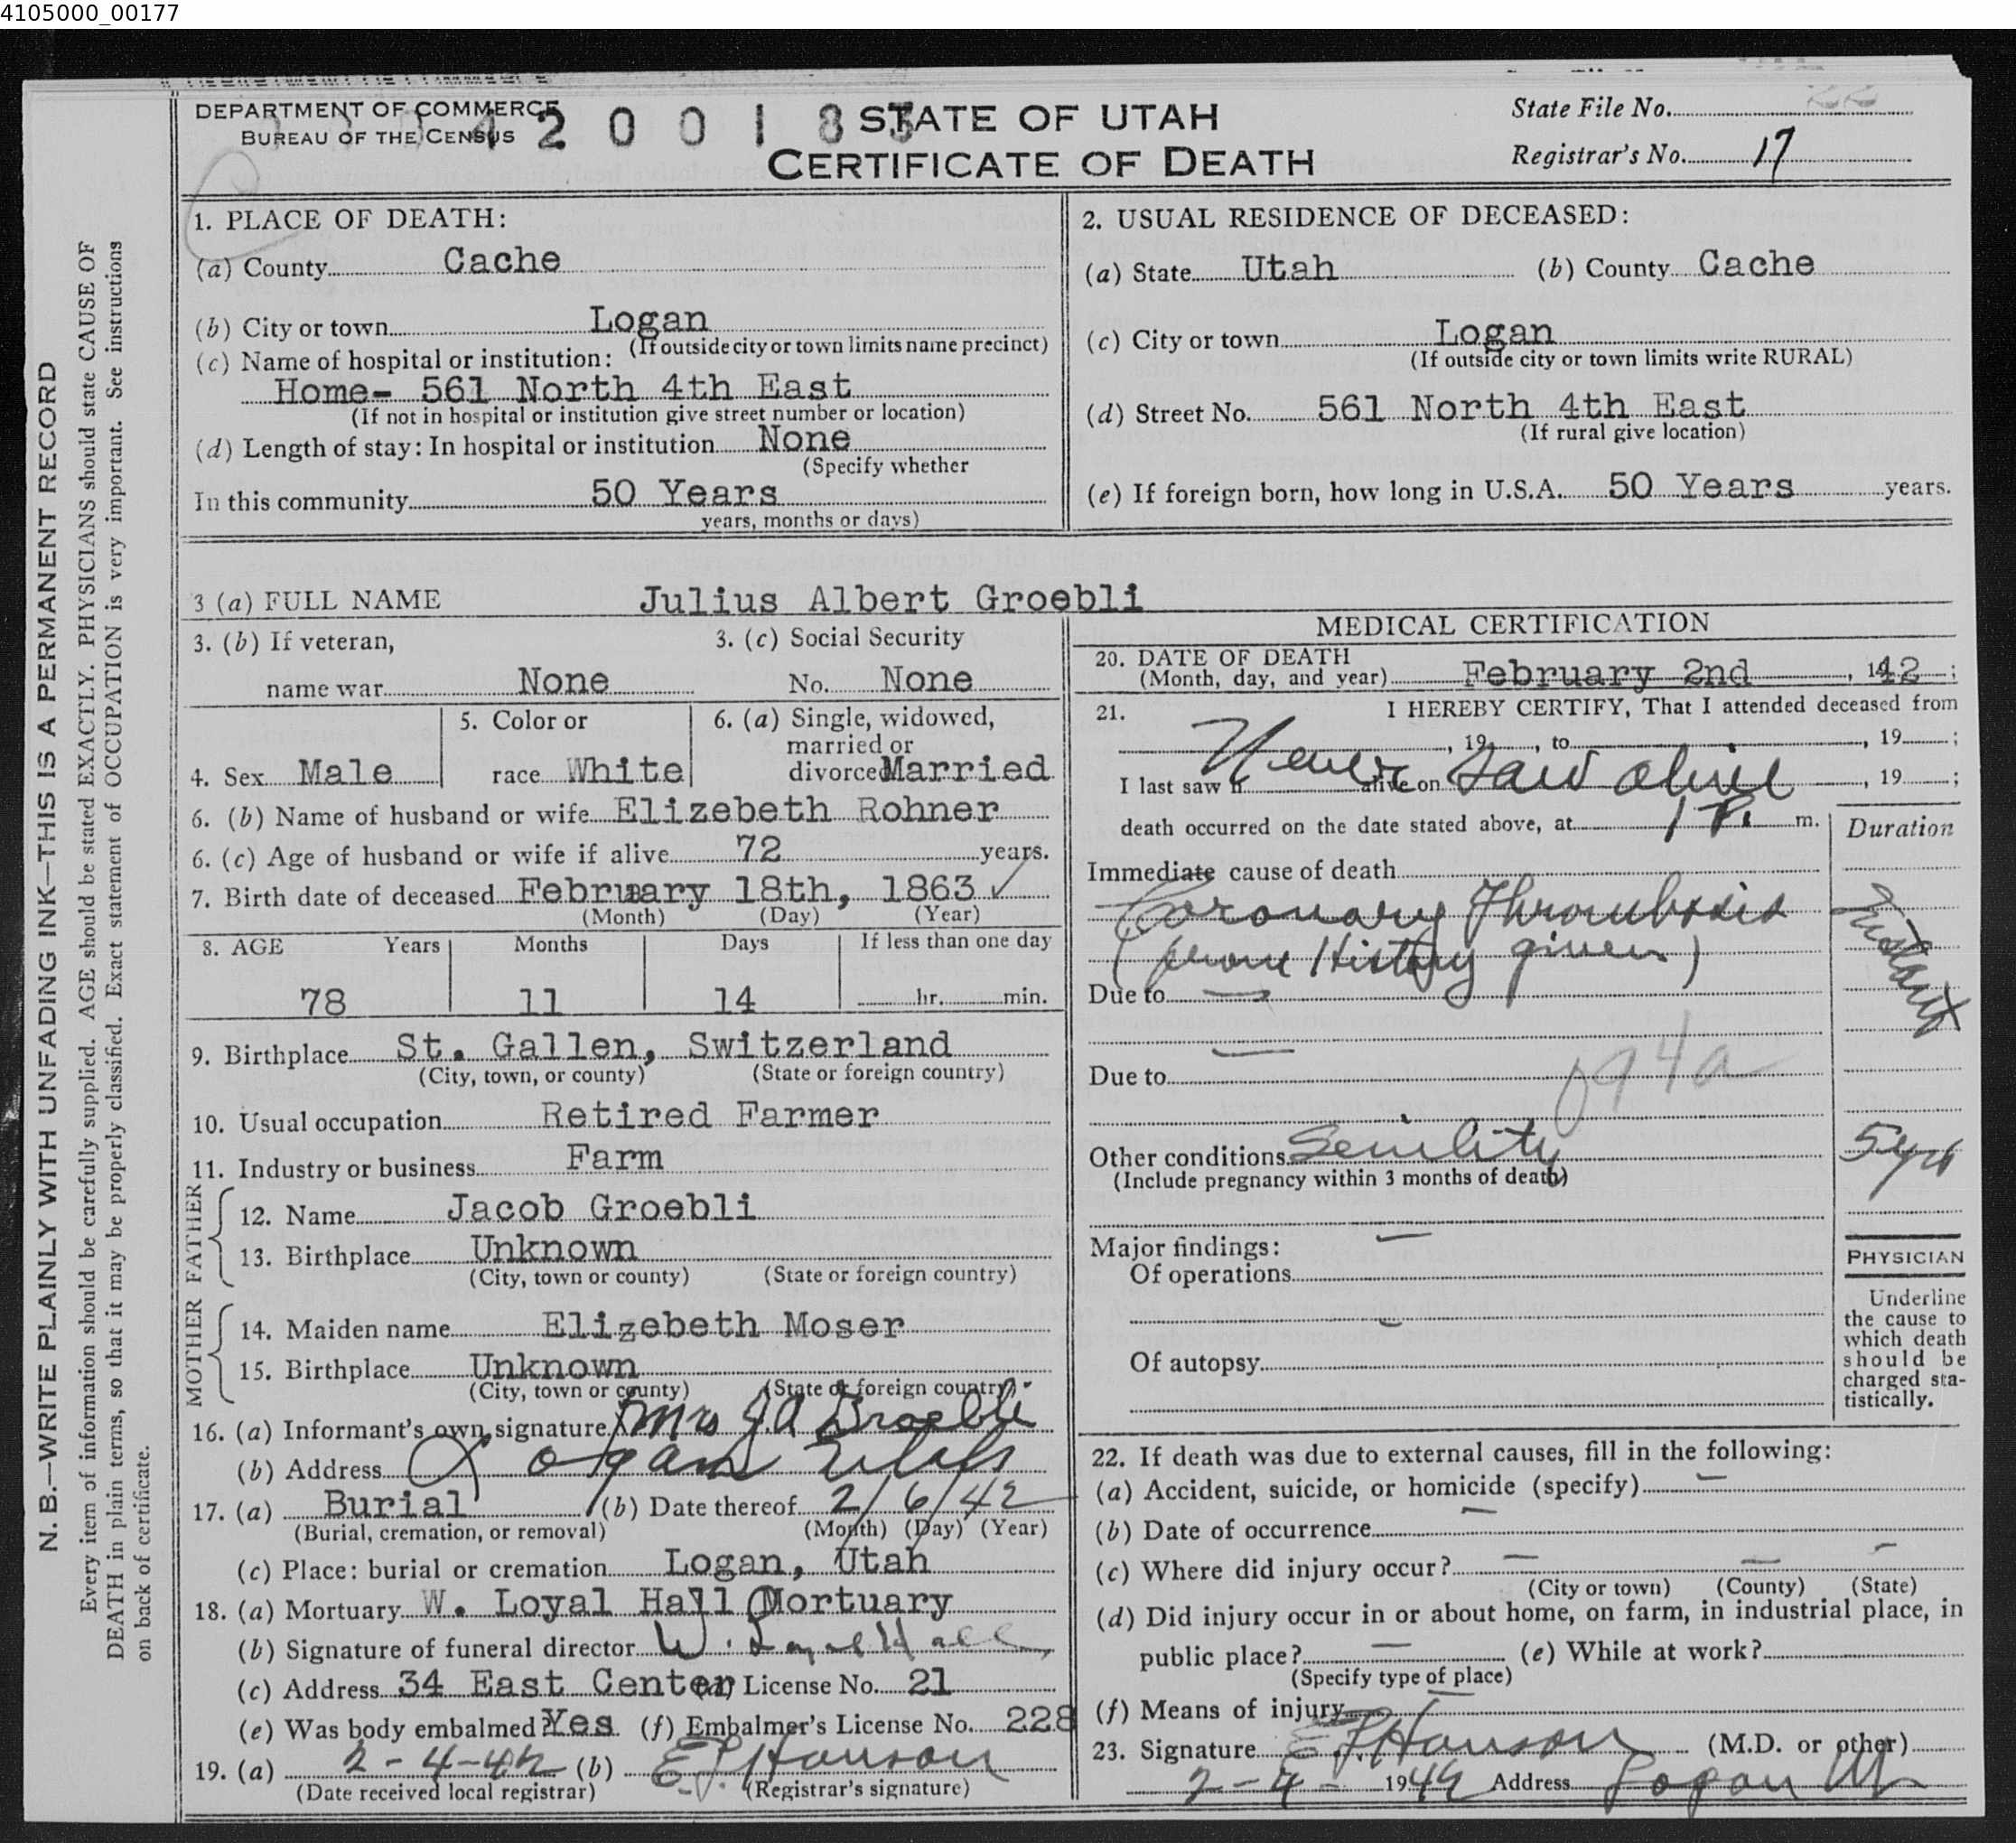 4105000_00177
DEPARTMENT OF COMMERCE
BUREAU OF THE CENSUS
4200183
STATE OF UTAH
CERTIFICATE OF DEATH
State File No. 22
Registrar's No. 17
N. B.—WRITE PLAINLY WITH UNFADING INK—THIS IS A PERMANENT RECORD
Every item of information should be carefully supplied. AGE should be stated EXACTLY. PHYSICIANS should state CAUSE OF
DEATH in plain terms, so that it may be properly classified. Exact statement of OCCUPATION is very important. See instructions
on back of certificate.
1. PLACE OF DEATH:
(a) County Cache
(b) City or town Logan
(If outside city or town limits name precinct)
(c) Name of hospital or institution:
Home- 561 North 4th East
(If not in hospital or institution give street number or location)
(d) Length of stay: In hospital or institution None
(Specify whether
In this community 50 Years
years, months or days)
2. USUAL RESIDENCE OF DECEASED:
(a) State Utah (b) County Cache
(c) City or town Logan
(If outside city or town limits write RURAL)
(d) Street No. 561 North 4th East
(If rural give location)
(e) If foreign born, how long in U.S.A. 50 Years years.
3 (a) FULL NAME Julius Albert Groebli
3. (b) If veteran, 3. (c) Social Security
name war None No. None
4. Sex Male
5. Color or
race White
6. (a) Single, widowed,
married or
divorced Married
6. (b) Name of husband or wife Elizebeth Rohner
6. (c) Age of husband or wife if alive 72 years.
7. Birth date of deceased February 18th, 1863 ✓
(Month) (Day) (Year)
8. AGE Years Months Days If less than one day
78 11 14 hr. min.
9. Birthplace St. Gallen, Switzerland
(City, town, or county) (State or foreign country)
10. Usual occupation Retired Farmer
11. Industry or business Farm
FATHER
12. Name Jacob Groebli
13. Birthplace Unknown
(City, town or county) (State or foreign country)
MOTHER
14. Maiden name Elizebeth Moser
15. Birthplace Unknown
(City, town or county) (State or foreign country)
16. (a) Informant's own signature X Mrs J. A Groebli
(b) Address Logan Utah
17. (a) Burial (b) Date thereof 2/6/42
(Burial, cremation, or removal) (Month) (Day) (Year)
(c) Place: burial or cremation Logan, Utah
18. (a) Mortuary W. Loyal Hall Mortuary
(b) Signature of funeral director W. Loyal Hall
(c) Address 34 East Center (d) License No. 21
(e) Was body embalmed? Yes (f) Embalmer's License No. 228
19. (a) 2-4-42 (b) E. J. Hanson
(Date received local registrar) (Registrar's signature)
MEDICAL CERTIFICATION
20. DATE OF DEATH
(Month, day, and year) February 2nd, 1942;
21. I HEREBY CERTIFY, That I attended deceased from
, 19 , to , 19 ;
I last saw h alive on , 19 ;
Never Saw alive
death occurred on the date stated above, at 1 P. m.
Duration
Immediate cause of death
Coronary Thrombosis
(from History given)
Instant
Due to —
—
Due to
094a
Other conditions Senility 5 yrs
(Include pregnancy within 3 months of death)
Major findings: —
Of operations
Of autopsy
PHYSICIAN
Underline
the cause to
which death
should be
charged sta-
tistically.
22. If death was due to external causes, fill in the following:
(a) Accident, suicide, or homicide (specify) —
(b) Date of occurrence —
(c) Where did injury occur? — — —
(City or town) (County) (State)
(d) Did injury occur in or about home, on farm, in industrial place, in
public place? — (e) While at work?
(Specify type of place)
(f) Means of injury —
23. Signature E J Hanson (M.D. or other)
2-4- 1942 Address Logan Ut